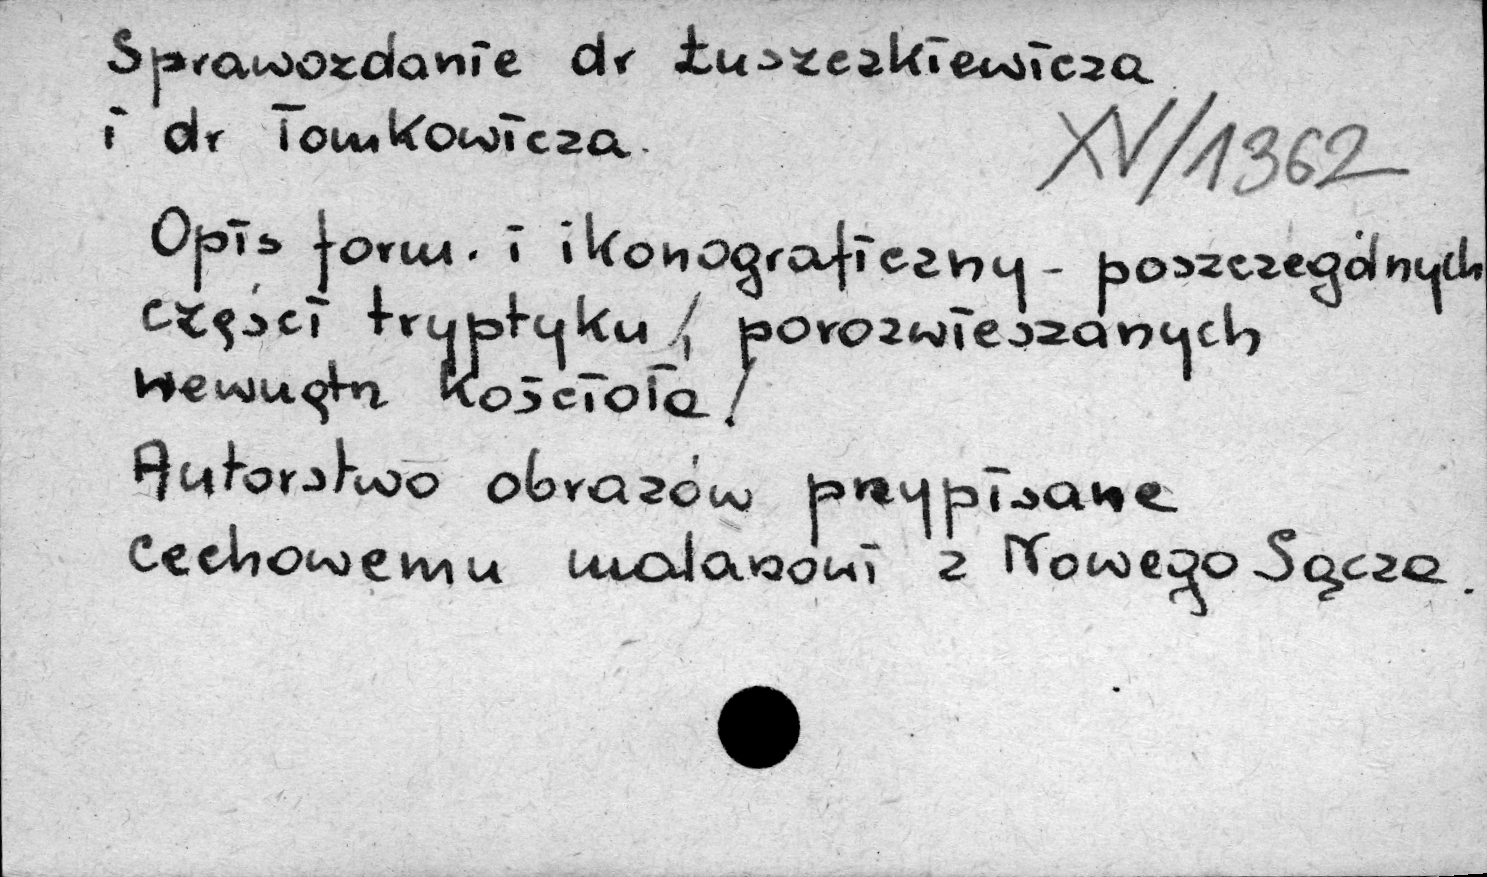 Sprawozdanie dr Łuszczkiewicza
i dr Tomkowicza.
XV/1362
Opis form. i ikonograficzny - poszczególnych
części tryptyku /, porozwieszanych
wewnątrz kościoła/.
Autorstwo obrazów przypisane
cechowemu malarzowi z Nowego Sącza.